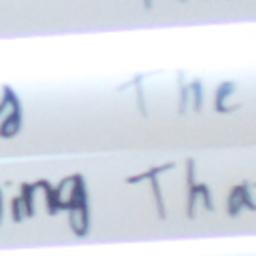 The
ing Tha